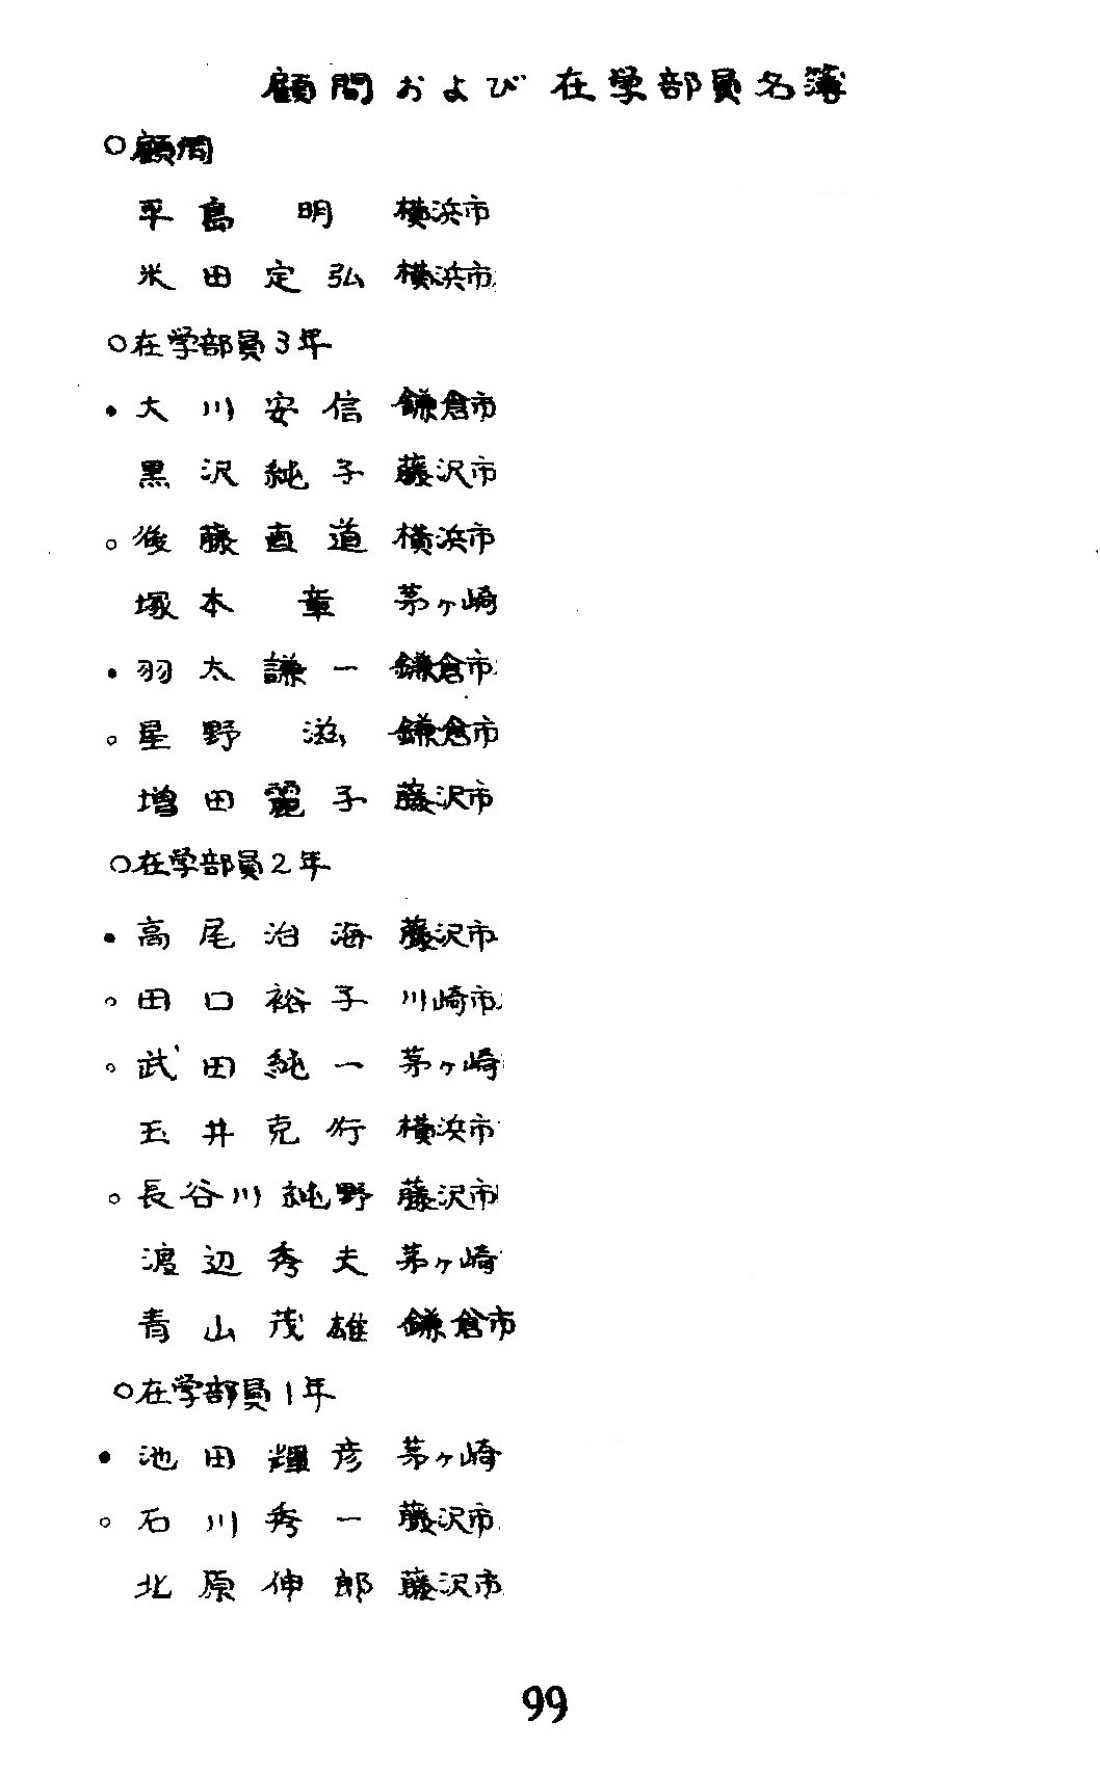 顧問および在学部員名簿
○顧問
平島 明 横浜市
米田定弘 横浜市
○在学部員3年
●大川安信 鎌倉市
黒沢純子 藤沢市
○後藤直道 横浜市
塚本 章 茅ヶ崎
●羽太謙一 鎌倉市
○星野 滋 鎌倉市
増田麗子 藤沢市
○在学部員2年
●高尾治海 藤沢市
○田口裕子 川崎市
○武田純一 茅ヶ崎
玉井克行 横浜市
○長谷川純野 藤沢市
渡辺秀夫 茅ヶ崎
青山茂雄 鎌倉市
○在学部員1年
●池田輝彦 茅ヶ崎
○石川秀一 藤沢市
北原伸郎 藤沢市
99